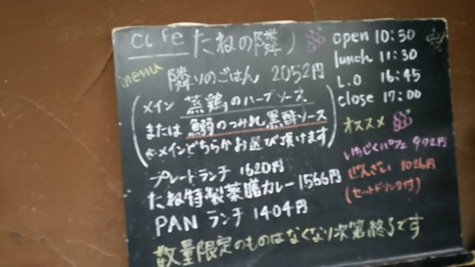 cafe たねの隣り
menu
隣りのごはん 2052円
メイン 蒸鶏のハーブソース
または 鰯のつみれ黒酢ソース
※メインどちらかお選び頂けます
プレートランチ 1620円
たね特製薬膳カレー 1566円
PAN ランチ 1404円
数量限定のものはなくなり次第終了です
open 10:30
lunch 11:30
L.O 16:45
close 17:00
オススメ
いちじくパフェ 972円
ぜんざい 1026円
(セットドリンク付)